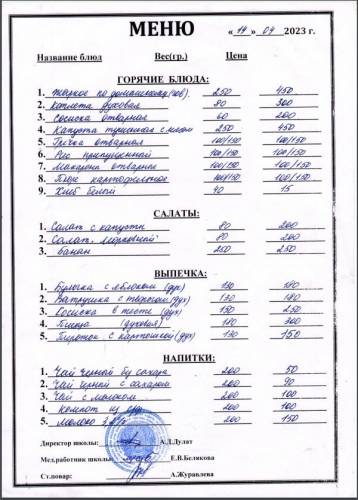 МЕНЮ «11» 04 2023 г.
Название блюд Вес(гр.) Цена
ГОРЯЧИЕ БЛЮДА:
1. Жаркое по домашнему(гов) 250 450
2. Котлета духовая 80 300
3. Сосиска отварная 60 200
4. Капуста тушенная с мясом 250 450
5. Гречка отварная 100/150 100/150
6. Рис припущенный 100/150 100/150
7. Макароны отварные 100/150 100/150
8. Пюре картофельное 100/150 100/150
9. Хлеб белый 40 15
САЛАТЫ:
1. Салат с капусты 80 200
2. Салат морковный 80 200
3. Банан 250 250
ВЫПЕЧКА:
1. Булочка с яблоком (дух) 130 180
2. Ватрушка с творогом(дух) 130 180
3. Сосиска в тесте (дух) 150 250
4. Пицца (духовая) 180 300
5. Пирожок с картошкой(дух) 130 150
НАПИТКИ:
1. Чай черный без сахара 200 50
2. Чай черный с сахаром 200 90
3. Чай с молоком 200 100
4. Компот из с/ф 200 100
5. Молоко 200 150
Директор школы: А.Д.Дулат
Мед.работник школы Е.В.Белякова
Ст.повар: А.Журавлева